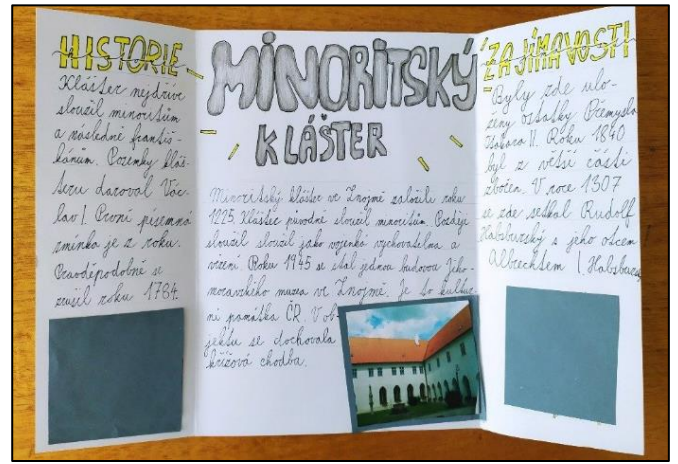 HISTORIE
Klášter nejdříve
sloužil minoritům
a následně františ-
kánům. Pozemky kláš-
teru daroval Vác-
lav I. První písemná
zmínka je z roku.
Pravděpodobně se
zrušil roku 1784.
MINORITSKÝ
KLÁŠTER
Minoritský klášter ve Znojmě založili roku
1225. Klášter původně sloužil minoritům. Později
sloužil sloužil jako vojenká vychovatelna a
vězení. Roku 1945 se stal jednou budovou Jiho-
moravského muzea ve Znojmě. Je to kultur-
ní památka ČR. V ob-
jektu se dochovala
křížová chodba.
ZAJÍMAVOSTI
Byly zde ulo-
ženy ostatky Přemysla
Otakara II. Roku 1840
byl z větší části
zbořen. V roce 1307
se zde setkal Rudolf
Habsburský s jeho otcem
Albrechtem I. Habsburs